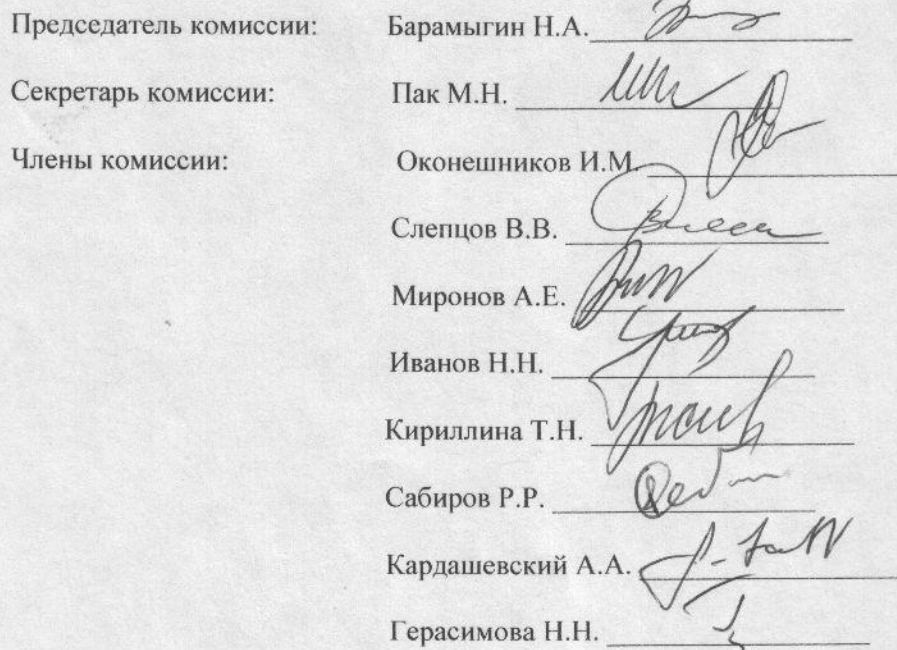 Председатель комиссии: Барамыгин Н.А.
Секретарь комиссии: Пак М.Н.
Члены комиссии: Оконешников И.М.
Слепцов В.В.
Миронов А.Е.
Иванов Н.Н.
Кириллина Т.Н.
Сабиров Р.Р.
Кардашевский А.А.
Герасимова Н.Н.